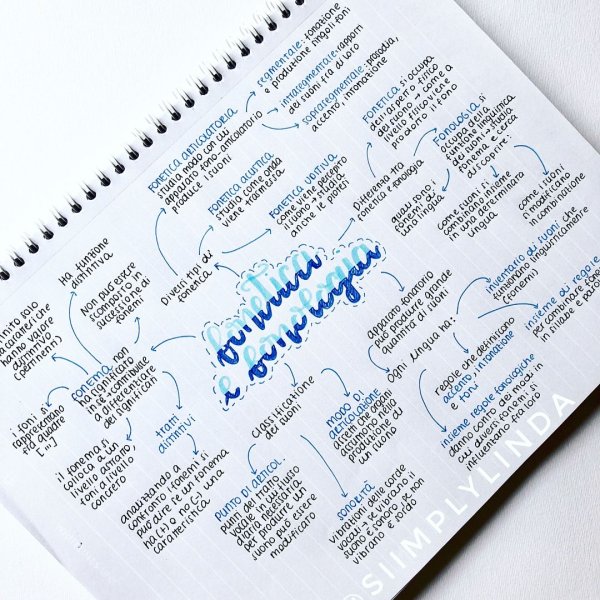 fonetica
e fonologia
Diversi tipi di
fonetica
FONETICA ARTICOLATORIA
studia modo con cui
apparato fono-articolatorio
produce i suoni
segmentale: fonazione
e produzione singoli foni
intrasegmentale: rapporti
dei suoni fra di loro
soprasegmentale: prosodia,
accento, intonazione
FONETICA ACUSTICA
studia come onda
viene trasmessa
FONETICA UDITIVA
come viene percepito
il suono → studia
anche le poteri
Differenza tra
fonetica e fonologia
FONETICA si occupa
dell'aspetto fisico
del suono → come a
livello fisico viene
prodotto il fono
FONOLOGIA si
occupa della
funzione linguistica
dei suoni → studia
fonema e cerca
di scoprire:
quali sono i
fonemi di
una lingua
come i suoni
si combinano insieme
in una determinata
lingua
come i suoni
si modificano
in combinazione
Apparato fonatorio
può produrre grande
quantità di foni
Ogni lingua ha:
inventario di suoni che
funzionano linguisticamente
(fonemi)
insieme di regole
per combinare fonemi
in sillabe e parole
regole che definiscono
accento, intonazione
e toni
insieme regole fonologiche
danno conto dei modi in
cui diversi fonemi si
influenzano tra loro
Classificazione
dei suoni
MODO DI
ARTICOLAZIONE
diverse che organi
assumono nella
produzione di
un suono
PUNTO DI ARTICOL.
punto del tratto
vocale in cui flusso
d'aria necessaria
per produrre un
suono può essere
modificato
SONORITÀ
vibrazioni delle corde
vocali → se vibrano il
suono è sonoro se non
vibrano è sordo
FONEMA non
ha significato
in sé → contribuisce
a differenziare
dei significati
Ha funzione
distintiva
Non può essere
scomposto in
successione di
fonemi
solo
caratteri che
hanno valore
distintivo
(pertinenti)
i foni si
rappresentano
tra quadre
[...]
il fonema si
colloca a un
livello astratto,
foni a livello
concreto
tratti
distintivi
analizzando a
confronto i fonemi si
può dire se un fonema
ha (+) o no (-) una
caratteristica
@SIIMPLYLINDA